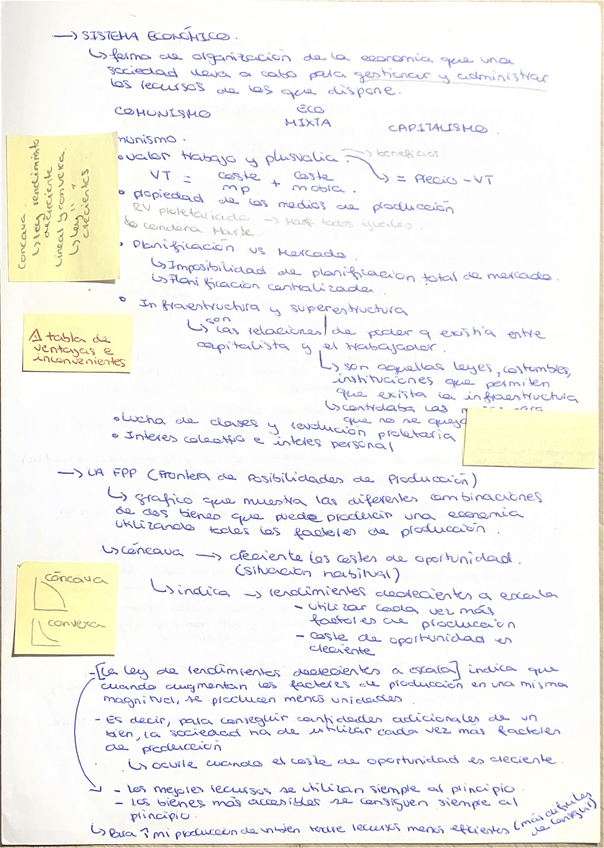 → SISTEMA ECONÓMICO.
↳ forma de organización de la economía que una
sociedad lleva a cabo para gestionar y administrar
los recursos de los que dispone.
COMUNISMO
ECO
MIXTA
CAPITALISMO
munismo.
• valor trabajo y plusvalía. → beneficios
VT = coste mp + coste mobra. ↳ = Precio - VT
• propiedad de los medios de producción
RV proletariado → Marx todos iguales.
• Planificación vs Mercado.
↳ Imposibilidad de planificación total de mercado.
↳ Planificación centralizada
• Infraestructura y superestructura
son
↳ las relaciones de poder q existía entre
capitalista y el trabajador.
↳ son aquellas leyes, costumbres,
instituciones que permiten
que exista la infraestructura
↳ controlaba las
que no se
• Lucha de clases y revolución proletaria
• Interes colectivo e interes personal
Concava.
↳ ley rendimiento
decreciente
lineal y convexa.
↳ ley "
crecientes
⚠ tabla de
ventajas e
inconvenientes
→ LA FPP (Frontera de Posibilidades de Producción)
↳ grafico que muestra las diferentes combinaciones
de dos bienes que puede producir una economía
utilizando todos los factores de producción.
↳ cóncava → creciente los costes de oportunidad.
(situación habitual)
↳ indica → rendimientos decrecientes a escala
- utilizar cada vez más
factores de producción
- coste de oportunidad es
creciente
cóncava
convexa
- [la ley de rendimientos decrecientes a escala] indica que
cuando augmentan los factores de producción en una misma
magnitud, se producen menos unidades.
- Es decir, para conseguir cantidades adicionales de un
bien, la sociedad ha de utilizar cada vez más factores
de producción
↳ ocurre cuando el coste de oportunidad es creciente.
- los mejores recursos se utilizan siempre al principio.
- los bienes más accesibles se consiguen siempre al
principio.
↳ Para ↑ mi producción de un bien recursos menos eficientes (más difíciles
de conseguir)